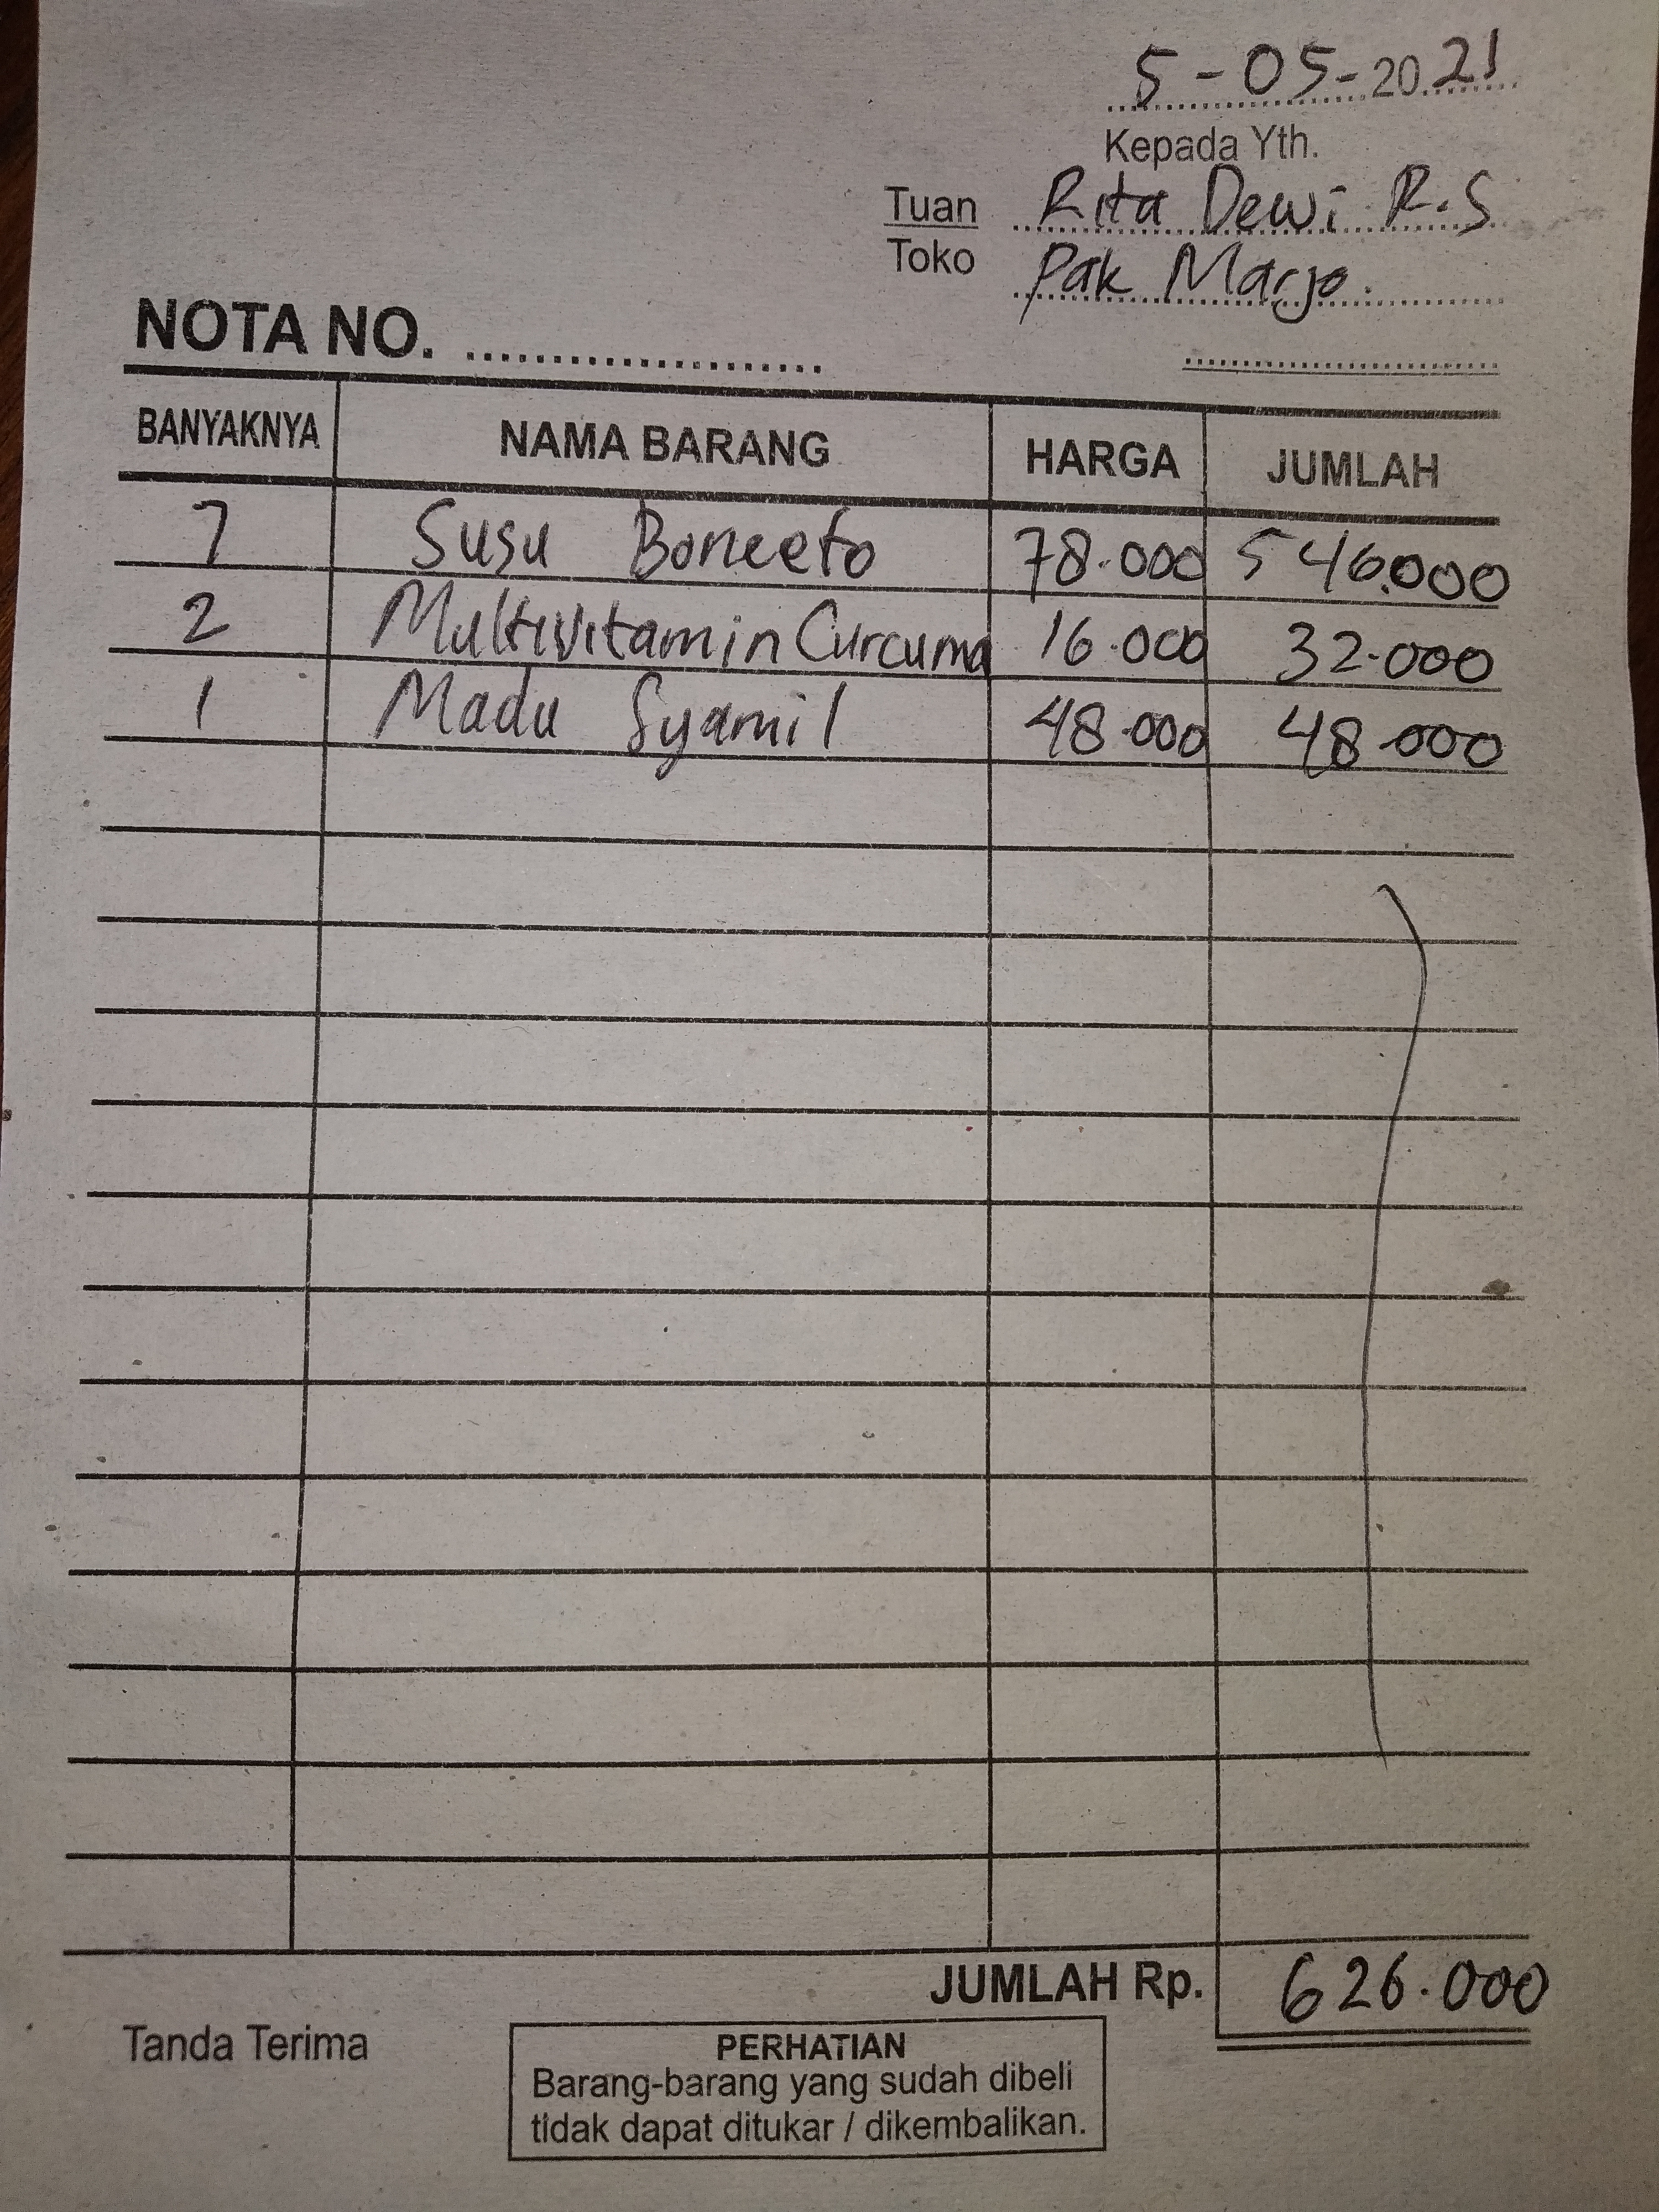 5-05-2021
Kepada Yth.
Tuan Rita Dewi R.S
Toko Pak Marjo.
NOTA NO. ....................
BANYAKNYA NAMA BARANG HARGA JUMLAH
7 Susu Boneeto 78.000 546.000
2 Multivitamin Curcuma 16.000 32.000
1 Madu Syamil 48.000 48.000
JUMLAH Rp. 626.000
Tanda Terima
PERHATIAN
Barang-barang yang sudah dibeli
tidak dapat ditukar / dikembalikan.